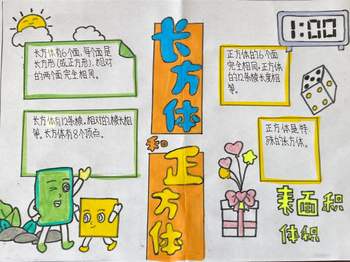 长方体有6个面,每个面是
长方形(或正方形),相对
的两个面完全相同。
长方体有12条棱,相对的棱长相
等。长方体有8个顶点。
长方体
和
正方体
1:00
正方体的6个面
完全相同,正方体
的12条棱长度相
等。
正方体是特
殊的长方体。
表面积
体积